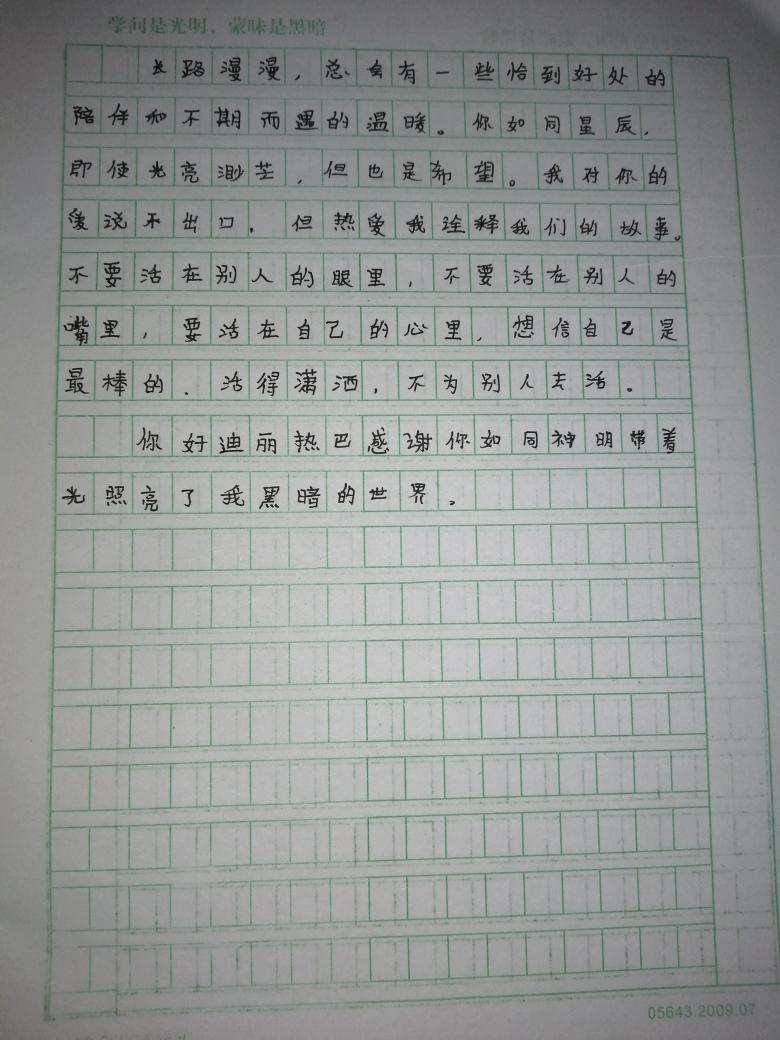 学问是光明，蒙昧是黑暗
长路漫漫，总会有一些恰到好处的
陪伴和不期而遇的温暖。你如同星辰，
即使光亮渺茫，但也是希望。我对你的
爱说不出口，但热爱我诠释我们的故事。
不要活在别人的眼里，不要活在别人的
嘴里，要活在自己的心里，想信自己是
最棒的．活得潇洒，不为别人去活。
你好迪丽热巴感谢你如同神明带着
光照亮了我黑暗的世界。
05643.2009.07